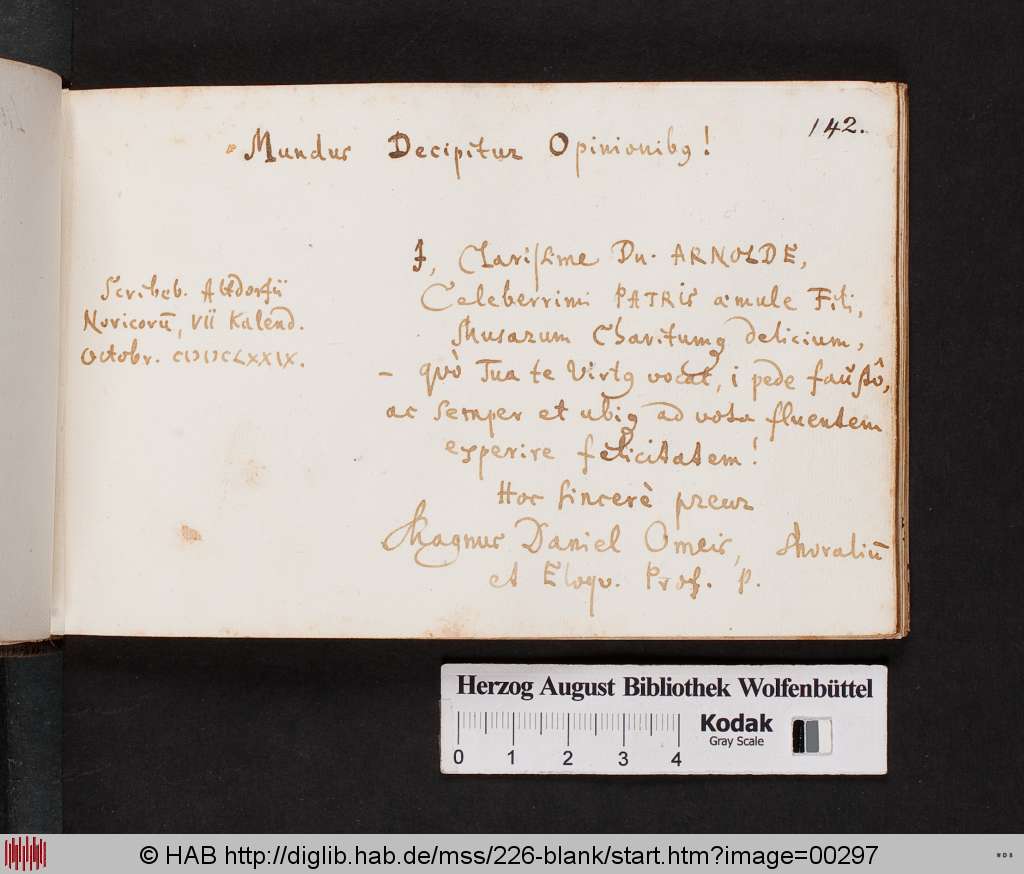 142.
Mundus Decipitur Opinionibꝰ!
I, Clarissime Dn. ARNOLDE,
Celeberrimi PATRIS æmule Fili,
Musarum Charitumq delicium,
– quò Tua te Virtꝰ vocat, i pede faustô,
ac semper et ubiq ad vota fluentem
experire felicitatem!
Hoc sincerè precur
Magnus Daniel Omeis, Moraliū
et Eloqv. Prof. P.
Scribeb. Altdorfii
Noricorū, VII Kalend.
Octobr. CIƆIƆCLXXIX.
Herzog August Bibliothek Wolfenbüttel
Kodak
Gray Scale
0 1 2 3 4
© HAB http://diglib.hab.de/mss/226-blank/start.htm?image=00297